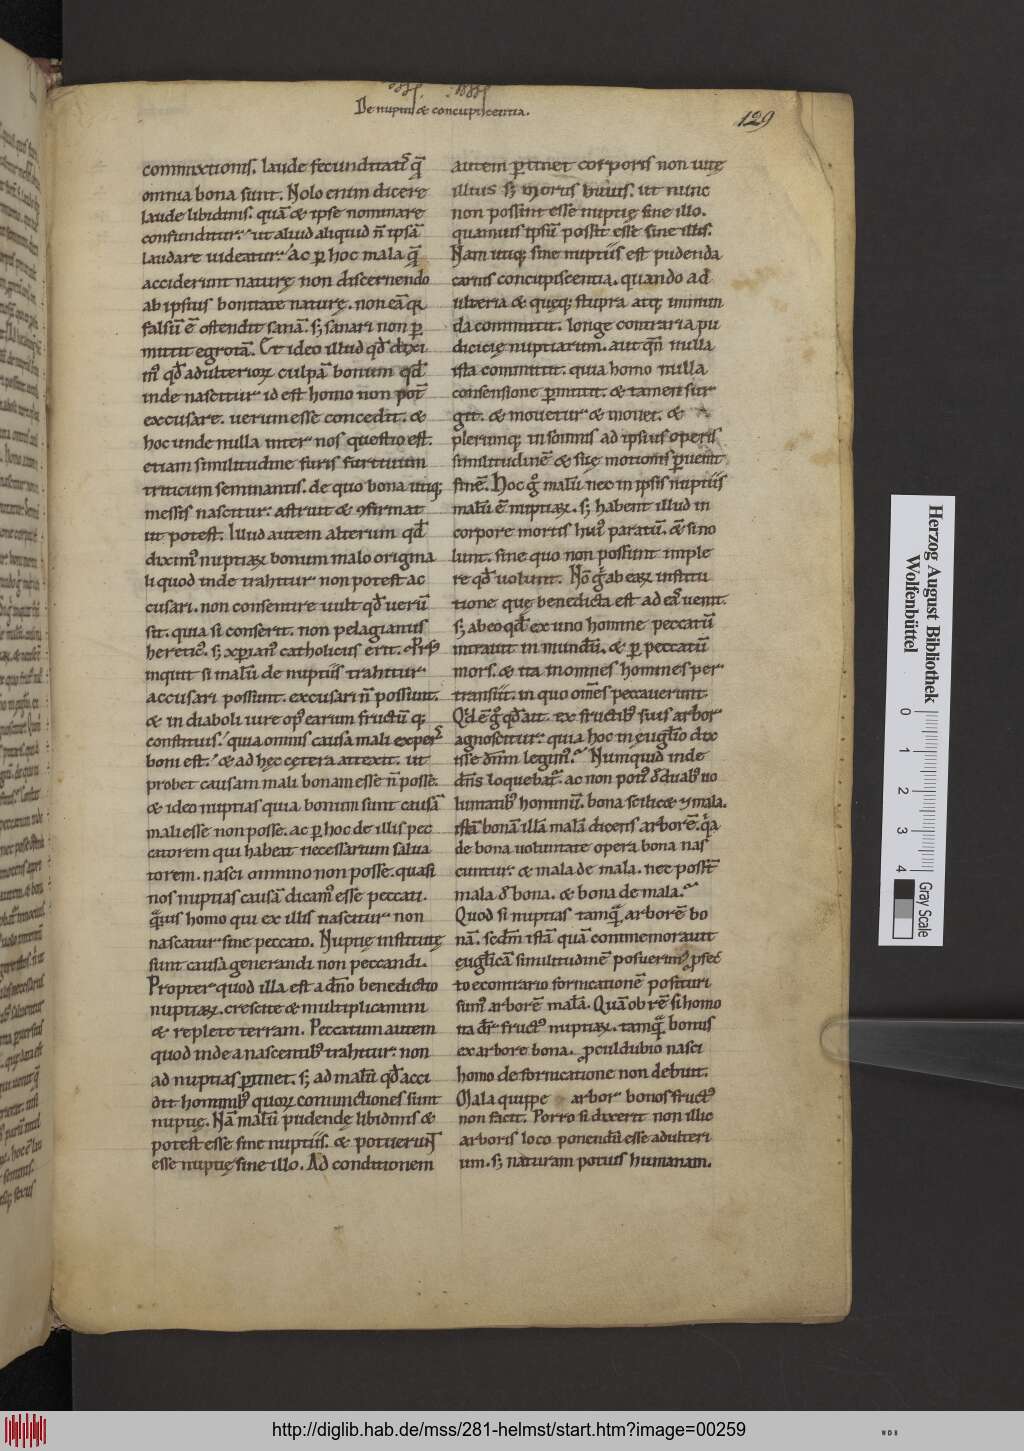 De nuptiis & concupiscentia.
129
commixtionis. laude fecunditatis quę̄
omnia bona sunt. Nolo enim dicere
laude libidinis. quā & ipse nominare
confunditur. ut aliud aliquid n̄ ipsā
laudare uideatur. Ac ꝑ hoc mala quę̄
acciderunt naturę non discernendo
ab ipsius bonitate naturę. non eā quā
falsū ē ostendit sanā. s; sanari non ꝑ
mittit egrotā. Et ideo illud qd̄ dixi
mꝰ qd̄ adulterioꝝ culpā bonum qd̄
inde nascitur id est homo non pot̄
excusare. uerum esse concedit. &
hoc unde nulla inter nos questio est.
etiam similitudine furis furtiuum
triticum seminantis. de quo bona utiq;
messis nascitur. astruit & ꝯfirmat
ut potest. Illud autem alterum qd̄
diximꝰ nuptiaꝝ bonum malo origina
li quod inde trahitur non potest ac
cusari. non consentire uult qd̄ uerū
sit. quia si consentit. non pelagianus
hereticꝰ. s; xp̄ianꝰ catholicus erit.
inquit si malū de nuptiis trahitur
accusari possunt. excusari n̄ possunt.
& in diaboli iure opꝰ earum fructū q;
constituis. quia omnis causa mali expers
boni est. & ad hęc cetera attexit. ut
probet causam mali bonam esse n̄ posse.
& ideo nuptias quia bonum sunt causā
mali esse non posse. ac ꝑ hoc de illis pec
catorem qui habeat necessarium salua
torem. nasci omnino non posse. quasi
nos nuptias causā dicamꝰ esse peccati.
quāuis homo qui ex illis nascitur non
nascatur sine peccato. Nuptię institutę
sunt causa generandi non peccandi.
Propter quod illa est a dn̄o benedictio
nuptiaꝝ. crescite & multiplicamini
& replete terram. Peccatum autem
quod inde a nascentibꝰ trahitur. non
ad nuptias ꝑtinet. s; ad malū qd̄ acci
dit hominibꝰ quoꝝ coniunctiones sunt
nuptię. Nā malū pudendę libidinis &
potest esse sine nuptiis. & potuerunt
esse nuptię sine illo. Ad conditionem
autem ꝑtinet corporis non uitę
illius s; mortis huius. ut nunc
non possint esse nuptię sine illo.
quamuis ipsū possit esse sine illis.
Nam utiq; sine nuptiis est pudenda
carnis concupiscentia. quando ad
ulteria & quęq; stupra atq; inmun
da committit. longe contraria pu
dicicię nuptiarum. aut qn̄ nulla
ista committit. quia homo nulla
consensione ꝑmittit. & tamen sur
git. & mouetur & mouet. &
plerumq; in somnis ad ipsius operis
similitudinē & suę motionis ꝑuenit
finē. Hoc gͦ malū nec in ipsis nuptiis
malū ē nuptiaꝝ. s; habent illud in
corpore mortis huiꝰ paratū. & si no
lunt. sine quo non possunt imple
re qd̄ uolunt. Nō gͣ ab eaꝝ institu
tione quę benedicta est ad eos uenit.
s; ab eo qd̄ ex uno homine peccatū
intrauit in mundū. & ꝑ peccatū
mors. & ita in omnes homines per
transiit. in quo om̄es peccauerunt.
Qd̄ ē gͦ qd̄ ait. ex fructibꝰ suis arbor
agnoscitur. quia hoc in euḡlio dix
isse dn̄m legimꝰ. Numquid inde
dn̄s loquebat. ac non potiꝰ de duabꝰ uo
luntatibꝰ hominū. bona scilicet & mala.
istā bonā illā malā dicens arborē. quia
de bona uoluntate opera bona nas
cuntur. & mala de mala. nec possūt
mala de bona. & bona de mala.
Quod si nuptias tamquā arborē bo
nā. scdm̄ istā quā commemorauit
euḡlicā similitudinē posuerimꝰ. ꝓfec
to econtrario fornicationē posituri
sumꝰ arborē malā. Quā ob rē si homo
ita dr̄ fructꝰ nuptiaꝝ. tamquā bonus
ex arbore bona. ꝓculdubio nasci
homo de fornicatione non debuit.
Mala quippe arbor bonos fructꝰ
non facit. Porro si dixerit non illic
arboris loco ponendū esse adulteri
um. s; naturam potius humanam.
Herzog August Bibliothek
Wolfenbüttel
0 1 2 3 4
Gray Scale
http://diglib.hab.de/mss/281-helmst/start.htm?image=00259